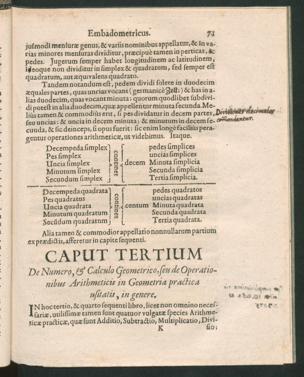 Embadometricus. 73
jusmodi mensuræ genus, & variis nominibus appellatur, & in va-
rias minores mensuras dividitur, præcipuè tamen in perticas, &
pedes. Jugerum semper habet longitudinem ac latitudinem,
ideoque non dividitur in simplex & quadratum, sed semper est
quadratum, aut æquivalens quadrato.
Tandem notandum est, pedem dividi solere in duodecim
æquales partes, quas unciæ vocant (germanicè Zoll:) & has in a-
lias duodecim, quas vocant minuta: quorum quodlibet subdivi-
di potest in alia duodecim, quæ appellentur minuta secunda. Me-
lius tamen & commodius erit, si pes dividatur in decem partes,
seu uncias: & uncia in decem minuta: & minutum in decem se-
cunda, & sic deinceps, si opus fuerit: sic enim longè facilius pera-
guntur operationes arithmeticæ, ut videbimus. Itaque.
Divisiones decimales
commendantur.
Decempeda simplex pedes simplices
Pes simplex uncias simplices
Uncia simplex continet decem Minuta simplicia
Minutum simplex Secunda simplicia
Secundum simplex Tertia simplicia.
Decempeda quadrata pedes quadratos
Pes quadratus uncias quadratas
Uncia quadrata continet centum Minuta quadrata
Minutum quadratum Secunda quadrata
Secundum quadratum Tertia quadrata.
Alia tamen & commodior appellatio nonnullarum partium
ex prædictis, afferetur in capite sequenti.
CAPUT TERTIUM
De Numero, & Calculo Geometrico, seu de Operatio-
nibus Arithmeticis in Geometria practica
usitatis, in genere.
IN hoc tertio, & quarto sequenti libro, licet non omnino neces-
sariæ, utilissimæ tamen sunt quatuor vulgatæ species Arithme-
ticæ practicæ, quæ sunt Additio, Subtractio, Multiplicatio, Divi-
K sio;